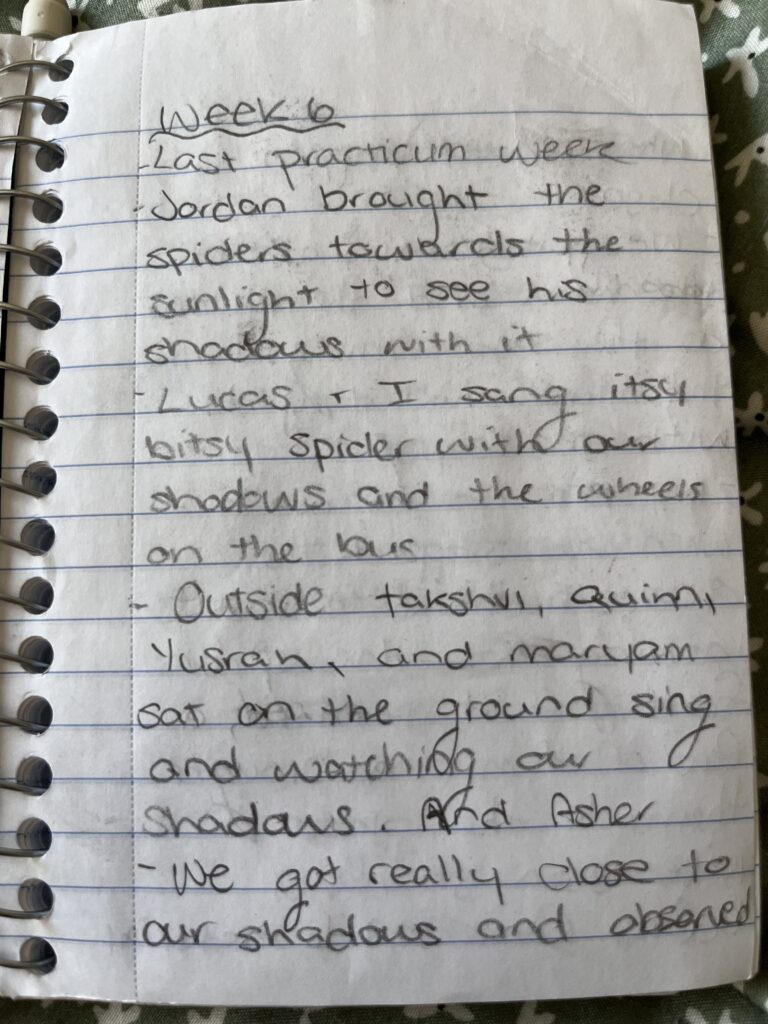 Week 6
-Last practicum week
-Jordan brought the
spiders towards the
sunlight to see his
shadows with it
-Lucas + I sang itsy
bitsy spider with our
shadows and the wheels
on the bus
- Outside takshvi, Quinn,
Yusrah, and maryam
sat on the ground sing
and watching our
shadows. And Asher
-We got really close to
our shadows and observed